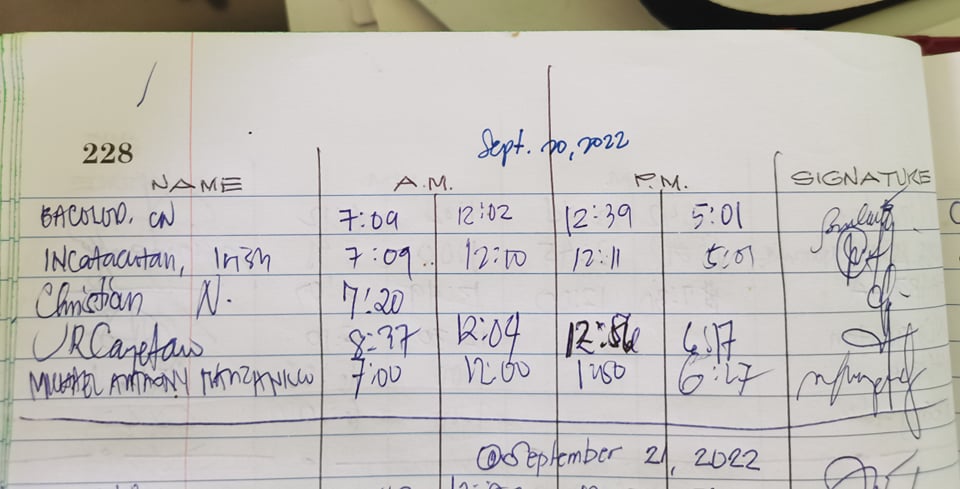 Sept. 20, 2022
228
NAME A.M. P.M. SIGNATURE
BACOLOD, CN 7:09 12:02 12:39 5:01
INCatacutan, Irish 7:09 12:00 12:11 5:01
Christian N. 7:20
JRCayetano 8:37 12:04 12:56 6:17
MICHAEL ANTHONY MANZANILLO 7:00 12:00 1:50 6:27
September 21, 2022